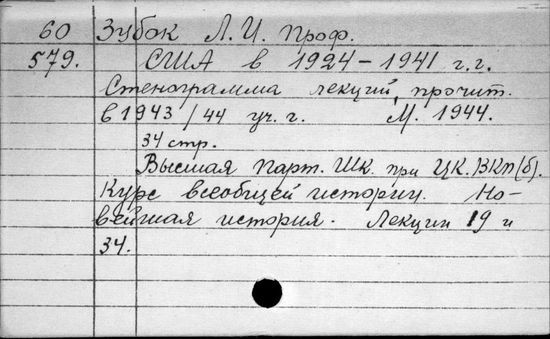 60 Зубок Л. И. проф.
579. США в 1924-1941 г.г.
Стенограмма лекций, прочит.
в 1943/44 уч. г. М. 1944.
34 стр.
Высшая Парт. Шк. при ЦК. ВКП(б).
Курс всеобщей истории. Но-
вейшая история. Лекции 19 и
34.